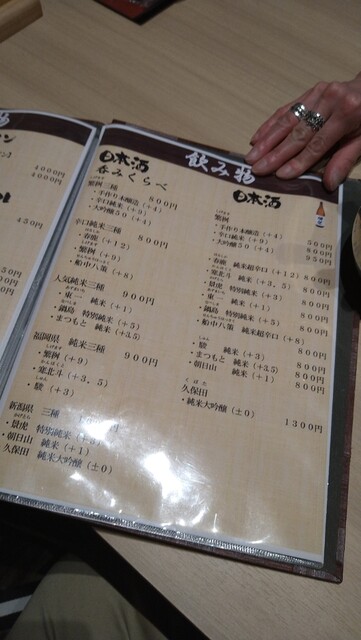 飲み物
日本酒
呑みくらべ
しげます
繁桝三種 800円
・手作り本醸造(+4)
・辛口純米(+9)
・大吟醸50(+4)
辛口純米三種 800円
・春鹿(+12)
・繁桝(+9)
・船中八策(+8)
人気純米三種 900円
・東一 純米(+1)
・鍋島 特別純米(+5)
・まつもと 純米(+3.5)
福岡県 純米三種 900円
・繁桝(+9)
・寒北斗(+3.5)
・駿(+3)
新潟県 三種
・景虎 特別純米(+3)
・朝日山 純米(+1)
・久保田 純米大吟醸(±0)
日本酒
しげます
繁桝
・手作り本醸造(+4) 500円
・辛口純米(+9) 800円
・大吟醸50(+4) 950円
・春鹿 純米超辛口(+12) 800円
・寒北斗(+3.5) 800円
・景虎 特別純米(+3) 800円
・東一 純米(+1) 800円
・鍋島 特別純米(+5) 800円
・船中八策 純米超辛口(+8) 800円
・駿 純米(+3) 800円
・まつもと 純米(+3.5) 800円
・朝日山 純米(+1) 800円
くぼた
久保田
純米大吟醸(±0) 1300円
4000円
4000円
450円